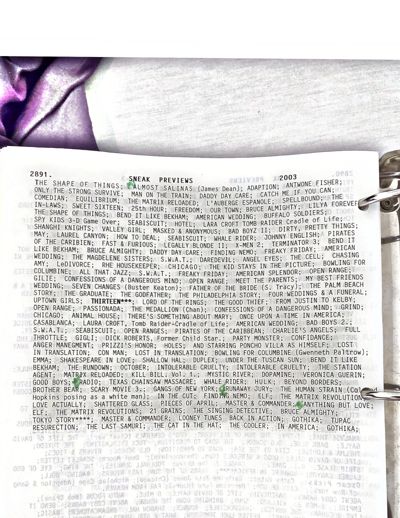 2891. SNEAK PREVIEWS 2003
THE SHAPE OF THINGS; ALMOST SALINAS (James Dean); ADAPTION; ANTWONE FISHER;
ONLY THE STRONG SURVIVE; MAN ON THE TRAIN; DADDY DAY CARE; CATCH ME IF YOU CAN;
COMEDIAN; EQUILIBRIUM; THE MATRIX RELOADED; L'AUBERGE ESPANOLE; SPELLBOUND; THE
IN-LAWS; SWEET SIXTEEN; 25th HOUR; FREEDOM; OUR TOWN; BRUCE ALMIGHTY; LILYA FOREVER;
THE SHAPE OF THINGS; BEND IT LIKE BEKHAM; AMERICAN WEDDING; BUFFALO SOLDIERS;
SPY KIDS 3-D Game Over; SEABISCUIT; HOTEL; LARA CROFT TOMB RAIDER Cradle of Life;
SHANGHI KNIGHTS; VALLEY GIRL; MASKED & ANONYMOUS; BAD BOYZ II; DIRTY, PRETTY THINGS;
MAY; LAUREL CANYON; HOW TO DEAL; SEABISCUIT; WHALE RIDER; JOHNNY ENGLISH; PIRATES
OF THE CARIBIEN; FAST & FURIOUS; LEGALLY BLONDE II; X-MEN 2; TERMINATOR 3; BEND IT
LIKE BEKHAM; BRUCE ALMIGHTY; DADDY DAY-CARE; FINDING NEMO; FREAKY FRIDAY; AMERICAN
WEDDING; THE MAGDELENE SISTERS; S.W.A.T.; DAREDEVIL; ANGEL EYES; THE CELL; CHASING
AMY; LeDIVORCE; THE HOUSEKEEPER; CHICAGO; THE KID STAYS IN THE PICTURE; BOWLING FOR
COLUMBINE; ALL THAT JAZZ; S.W.A.T.; FREAKY FRIDAY; AMERICAN SPLENDOR; OPEN RANGE;
GILLIES; CONFESSIONS OF A DANGEROUS MIND; OPEN RANGE; MEET THE PARENTS; MY BEST FRIENDS
WEDDING; SEVEN CHANCES (Buster Keaton); FATHER OF THE BRIDE (S. Tracy); THE PALM BEACH
STORY; THE GRADUATE; THE GODFATHER; THE PHILADELPHIA STORY; FOUR WEDDINGS & A FUNERAL;
UPTOWN GIRLS; THIRTEEN***; LORD OF THE RINGS; THE GOOD THIEF; FROM JUSTIN TO KELBY;
OPEN RANGE; PASSIONADA; THE MEDALLION (Chan); CONFESSIONS OF A DANGEROUS MIND; GRIND;
CHICAGO; ANIMAL HOUSE; THER'S SOMETHING ABOUT MARY; ONCE UPON A TIME IN AMERICA;
CASABLANCA; LAURA CROFT, Tomb Raider-Cradle of Life; AMERICAN WEDDING; BAD BOYS 2;
S.W.A.T.; SEABISCUIT; OPEN RANGES; PIRATES OF THE CARIBBEAN; CHARLIE'S ANGELS; FULL
THROTTLE; GIGLI; DICK ROBERTS, Former Child Star.; PARTY MONSTER; CONFIDANCE;
ANGER MANGEMENT; PRIZZIS HONOR; HOLES; AND STARRING PONCHO VILLA AS HIMSELF; LOST
IN TRANSLATION; CON MAN; LOST IN TRANSLATION; BOWLING FOR COLUMBINE (Gwenneth Paltrow);
EMMA; SHAKESPEARE IN LOVE; SHALLOW HALL; DUPLEX; UNDER THE TUSCAN SUN; BEND IT LIKE
BEKHAM; THE RUNDOWN; OCTOBER; INTOLERABLE CRUELTY; INTOLERABLE CRUELTY; THE STATION
AGENT; MATRIX RELOADED; KILL BILL, Vol. 1.; MYSTIC RIVER; DOPAMINE; VERONICA GUERIN;
GOOD BOYS; RADIO; TEXAS CHAINSAW MASSACRE; WHALE RIDER; HULK; BEYOND BORDERS;
BROTHER BEAR; SCARY MOVIE 3.; GANGS OF NEW YORK; RUNAWAY JURY; THE HUMAN STRAIN
Hopkins posing as a white man); IN THE CUT; FINDING NEMO; ELF; THE MATRIX REVOLUTION
LOVE ACTUALLY; SHATTERED GLASS; PIECES OF APRIL; MASTER & COMMANDER; ANYTHING BUT LOVE;
ELF; THE MATRIX REVOLUTIONS; 21 GRAINS; THE SINGING DETECTIVE; BRUCE ALMIGHTY;
TOKYO STORY****; MASTER & COMMANDER; LOONEY TUNES, BACK IN ACTION; GOTHIKA; TUPAC
RESURECTION; THE LAST SAMURI; THE CAT IN THE HAT; THE COOLER; IN AMERICA; GOTHIKA;